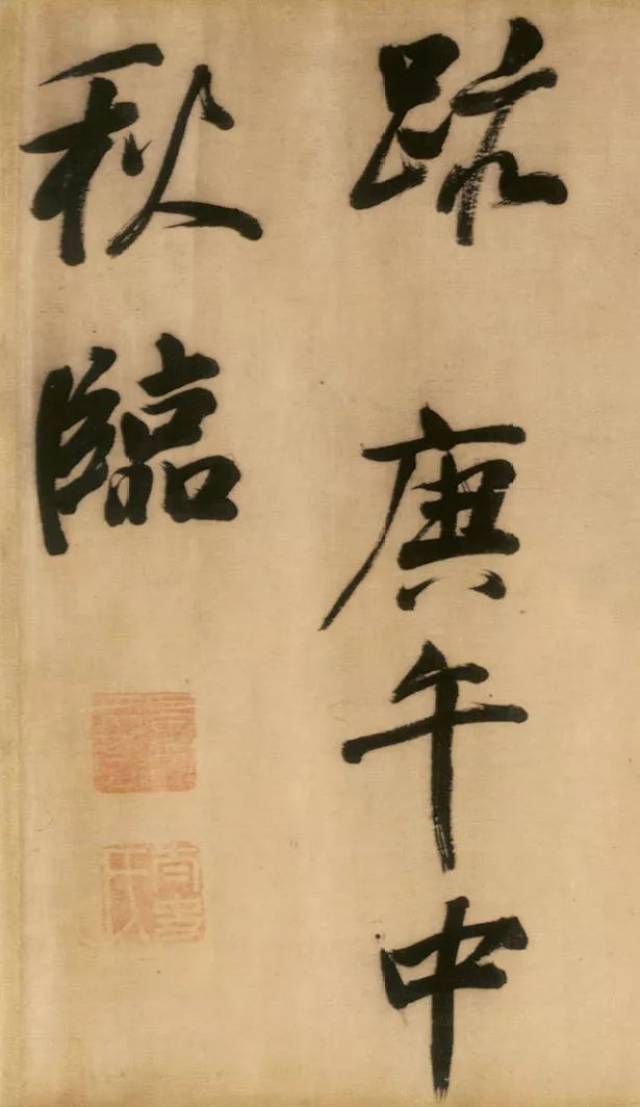 疏庚午中
秋臨